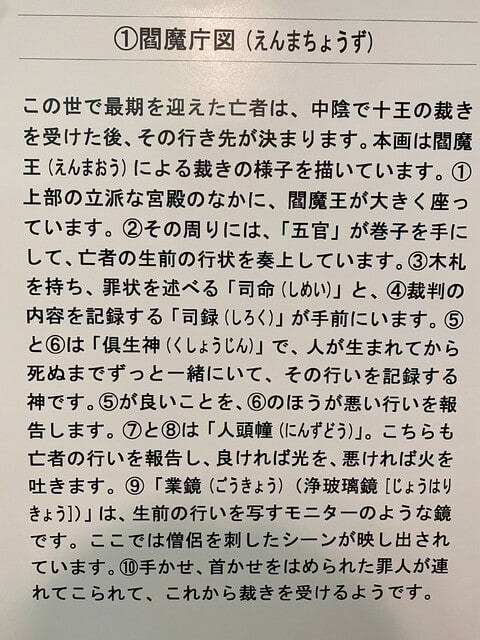 ①閻魔庁図（えんまちょうず）
この世で最期を迎えた亡者は、中陰で十王の裁き
を受けた後、その行き先が決まります。本画は閻魔
王（えんまおう）による裁きの様子を描いています。①
上部の立派な宮殿のなかに、閻魔王が大きく座っ
ています。②その周りには、「五官」が巻子を手に
して、亡者の生前の行状を奏上しています。③木札
を持ち、罪状を述べる「司命（しめい）」と、④裁判の
内容を記録する「司録（しろく）」が手前にいます。⑤
と⑥は「倶生神（くしょうじん）」で、人が生まれてから
死ぬまでずっと一緒にいて、その行いを記録する
神です。⑤が良いことを、⑥のほうが悪い行いを報
告します。⑦と⑧は「人頭幢（にんずどう）」。こちらも
亡者の行いを報告し、良ければ光を、悪ければ火を
吐きます。⑨「業鏡（ごうきょう）（浄玻璃鏡［じょうはり
きょう］）」は、生前の行いを写すモニターのような鏡
です。ここでは僧侶を刺したシーンが映し出され
ています。⑩手かせ、首かせをはめられた罪人が連
れてこられて、これから裁きを受けるようです。